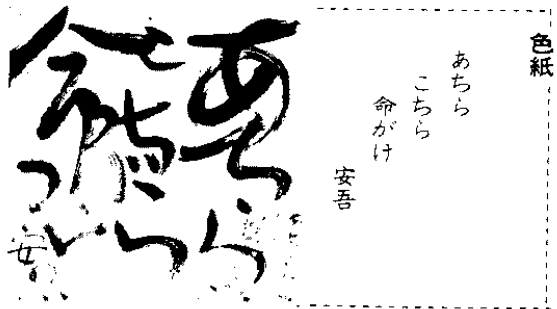 色紙
あちら
こちら
命がけ
安吾
あちら
こちら
命がけ
安吾